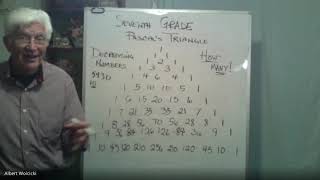 SEVENTH GRADE
PASCAL'S TRIANGLE
1
1 1
DECREASING 1 2 1 HOW
NUMBERS 1 3 3 1 MANY!
1 4 6 4 1
1 5 10 10 5 1
1 6 15 20 15 6 1
1 7 21 35 35 21 7 1
1 8 28 56 70 56 28 8 1
9 36 84 126 126 84 36 9 1
10 45 120 210 120 45 10 1
Albert Wolcicki